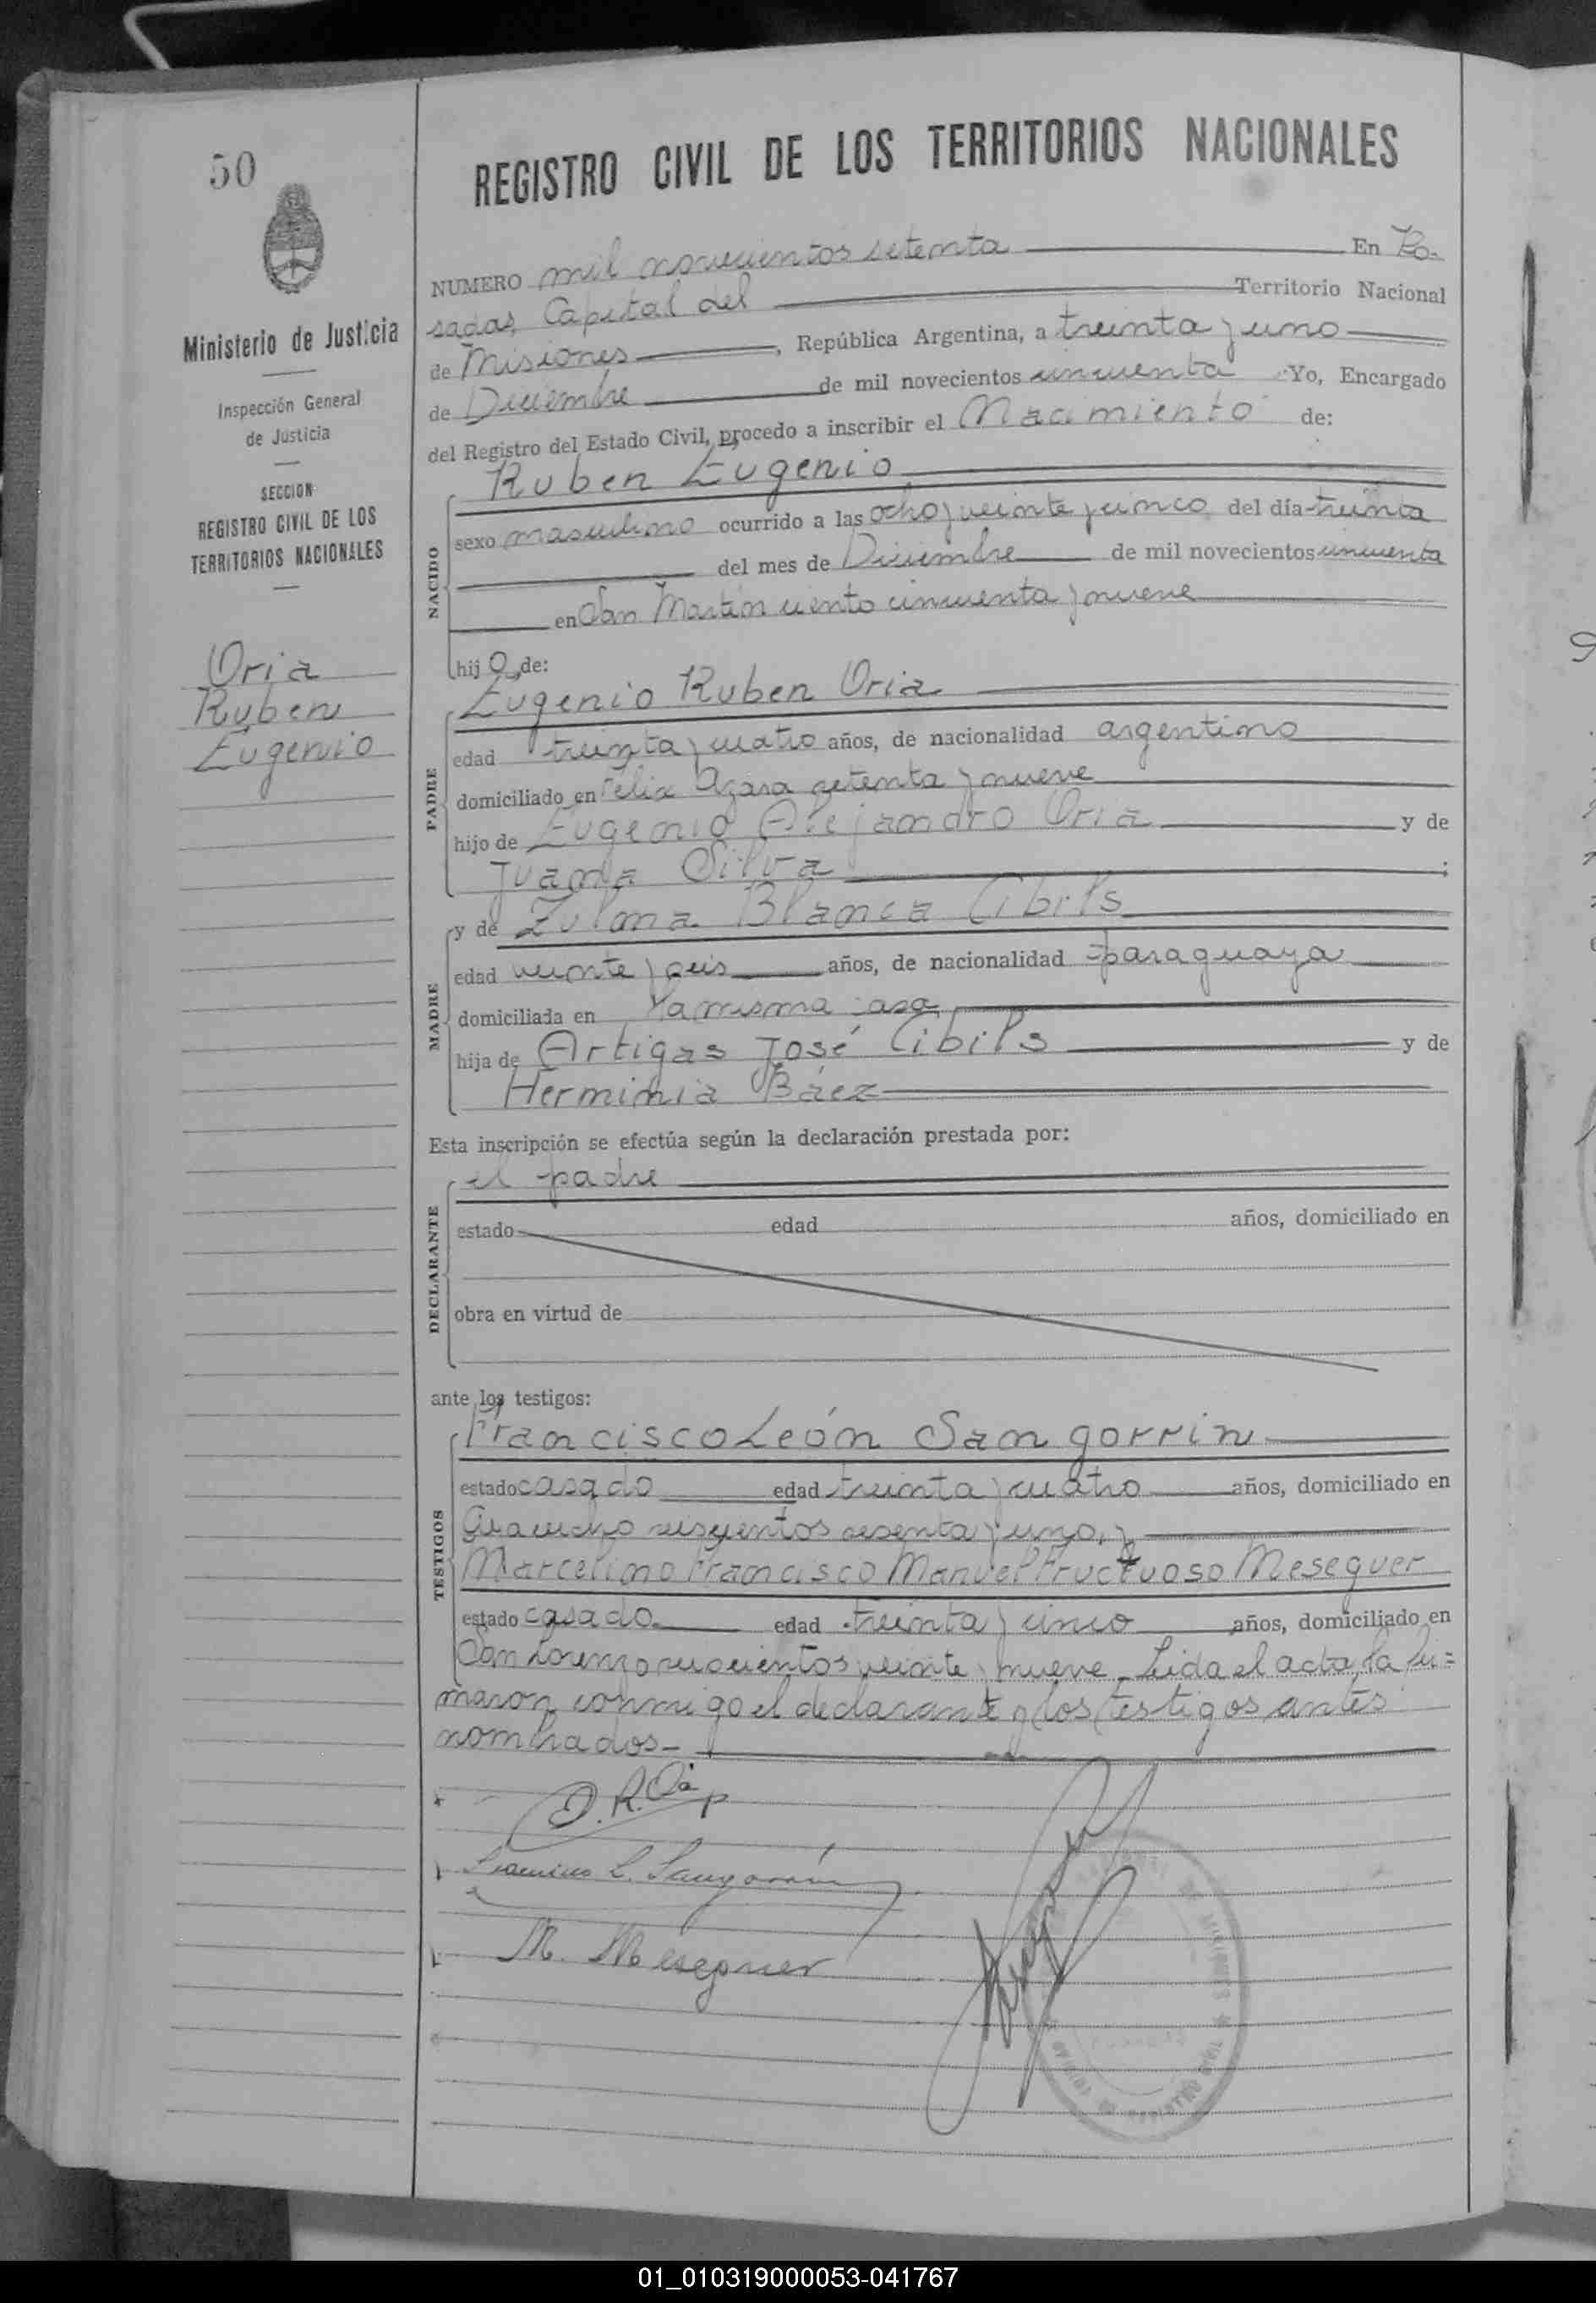 50
Ministerio de Justicia
Inspección General
de Justicia
SECCION
REGISTRO CIVIL DE LOS
TERRITORIOS NACIONALES
Oria
Ruben
Eugenio
REGISTRO CIVIL DE LOS TERRITORIOS NACIONALES
NUMERO mil novecientos setenta En Po-
sadas, Capital del Territorio Nacional
de Misiones, República Argentina, a treinta y uno
de Diciembre de mil novecientos cincuenta Yo, Encargado
del Registro del Estado Civil, procedo a inscribir el Nacimiento de:
NACIDO
Ruben Eugenio
sexo masculino ocurrido a las ocho y veinte y cinco del día treinta
del mes de Diciembre de mil novecientos cincuenta
en San Martín ciento cincuenta y nueve
hijo de:
PADRE
Eugenio Ruben Oria
edad treinta y cuatro años, de nacionalidad argentino
domiciliado en Félix Azara setenta y nueve
hijo de Eugenio Alejandro Oria y de
Juana Silva ;
MADRE
y de Zulma Blanca Cibils
edad veinte y seis años, de nacionalidad paraguaya
domiciliada en la misma casa
hija de Artigas José Cibils y de
Herminia Báez
Esta inscripción se efectúa según la declaración prestada por:
DECLARANTE
el padre
estado edad años, domiciliado en
obra en virtud de
ante los testigos:
TESTIGOS
Francisco León Sangorrin
estado casado edad treinta y cuatro años, domiciliado en
Ayacucho seiscientos sesenta y uno, y
Marcelino Francisco Manuel Fructuoso Meseguer
estado casado edad treinta y cinco años, domiciliado en
San Lorenzo veinte y nueve. Leida el acta, la fir=
maron conmigo el declarante y los testigos antes
nombrados.-
Francisco L. Sangorrin
M. Meseguer
DE MISIONES
01_010319000053-041767